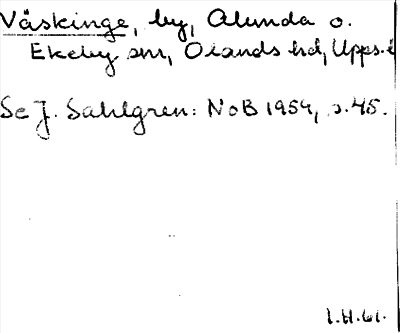 Väskinge, by, Alunda o.
Ekeby sm, Olands hd, Upps. l
Se J. Sahlgren: NoB 1954, s. 45.
I.H. 61.